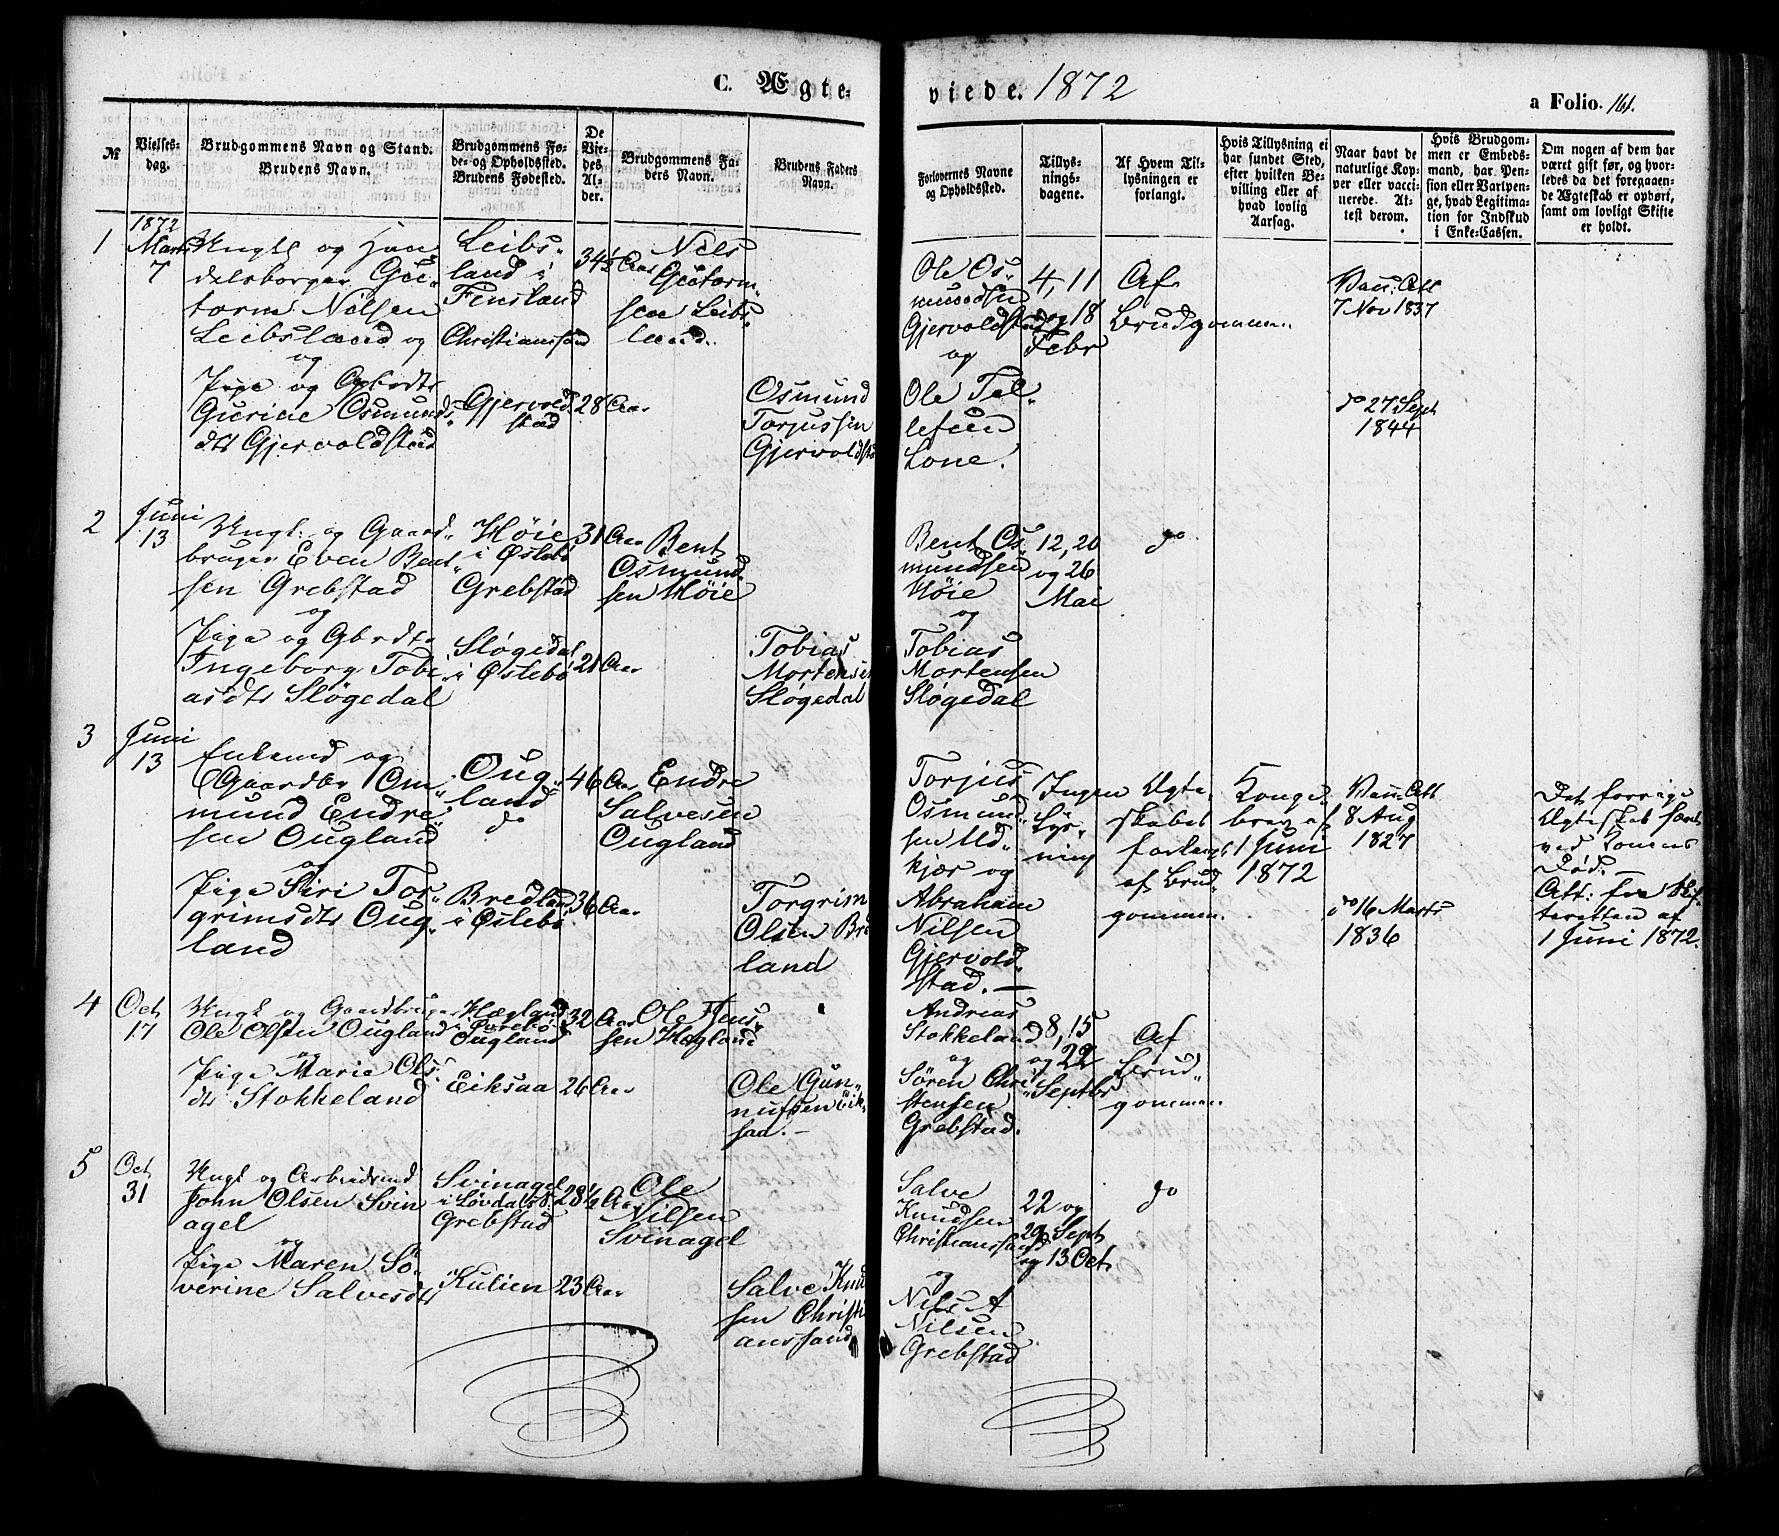 C. Ægte- viede. 1872
a Folio. 161.
№
Vielses-
dag.
Brudgommens Navn og Stand.
Brudens Navn.
Brudgommens Fø-
de- og Opholdssted.
Brudens Fødested.
De
Vie-
des
Al-
der.
Brudgommens Fa-
ders Navn.
Brudens Faders
Navn.
Forlovernes Navne
og Opholdssted.
Tillys-
nings-
dagene.
Af Hvem Til-
lysningen er
forlangt.
Hvis Tillysning ei
har fundet Sted,
efter hvilken Be-
villing eller af
hvad lovlig
Aarsag.
Naar havt de
naturlige Kop-
per eller vacci-
nerede. At-
test derom.
Hvis Brudgom-
men er Embeds-
mand, har Pen-
sion eller Vartpen-
ge, hvad Legitima-
tion for Indskud
i Enke-Cassen.
Om nogen af dem har
været gift før, og hvor-
ledes da det foregaaen-
de Ægteskab er ophørt,
samt om lovligt Skifte
er holdt.
1
1872
Marts
7
Ungk og Han
delsborger Gut-
torm Nilsen
Leibsland og
og
Pige og Gbrdtr
Gurine Osmunds-
dtr Gjervoldstad
Leibs-
land i
Finsland
Christianssand
Gjervold-
stad
34½ Aar
28 Aar
Nils
Guttorm-
sen Leibs-
land.
Osmund
Torjussen
Gjervoldstd
Ole Os-
mundsen
Gjervoldstad
og
Ole Tel-
lefsen
Lone.
4, 11
og 18
Febr
Af
Brudgommen.
Vacc. Att
7 Nov 1837
do 27 Sept
1844
2
Juni
13
Ungk. og Gaard-
bruger Even Bent-
sen Grebstad
og
Pige og Gbrdtr
Ingeborg Tobi-
asdtr Sløgedal
Høie
i Øslebø
Grebstad
Sløgedal
i Øslebø
31 Aar
21 Aar
Bent
Osmund-
sen Høie
Tobias
Mortensen
Sløgedal
Bent Os-
mundsen
Høie
og
Tobias
Mortensen
Sløgedal
12, 20
og 26
Mai
do
3
Juni
13
Enkemd og
Gaardbr Om-
mund Endre-
sen Ougland
og
Pige Siri Tor-
grimsdtr Oug-
land
Oug-
land
do
Bredland
i Øslebø
46 Aar
36 Aar
Endre
Salvesen
Ougland
Torgrim
Olsen Bre
land
Torjus
Osmund-
sen Ud-
kjær og
Abraham
Nilsen
Gjervold-
stad. —
Ingen
Lys-
ning
Ægte-
skabet
forlangt
af Brud-
gommen.
Konge-
brev af
1 Juni
1872
Vacc. Att
8 Aug
1827
do 16 Marts
1836
Det forrige
Ægteskab hævet
ved Konens
Død. —
Att: fra Skif-
teretten af
1 Juni 1872.
4
Oct
17
Ungk og Gaardbruger
Ole Olsen Ougland
og
Pige Marie Ols-
dtr Stokkeland
Hægland
i Øvrebø
Ougland
Eiksaa
32 Aar
26 Aar
Ole Jens-
sen Hægland
Ole Gun-
nufsen Eik-
saa. —
Andreas
Stokkeland
og
Søren Chri-
stensen
Grebstad.
8, 15
og 22
Septbr
Af
Brud-
gommen.
5
Oct
31
Ungk og Arbeidsmd
John Olsen Svin
agel
og
Pige Maren Sø-
verine Salvesdtr
Svinagel
i Løvdals S.
Grebstad
Kulien
28½ Aar
23 Aar
Ole
Nilsen
Svinagel
Salve Knud
sen Christi
anssand
Salve
Knudsen
Christianssand
og
Nils A
Nilsen
Grebstad
22 og
29 Sept
og 13 Oct.
do